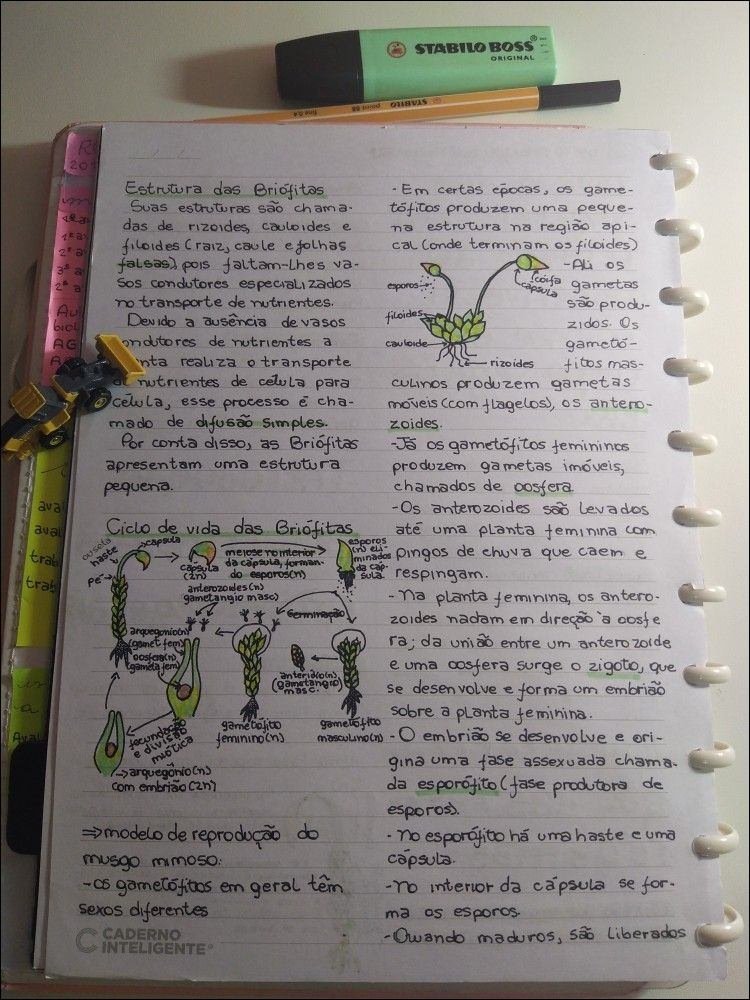 STABILO BOSS
ORIGINAL
STABILO point 88 fine 0,4
Estrutura das Briófitas
Suas estruturas são chama-
das de rizoides, cauloides e
filoides (raiz, caule e folhas
falsas), pois faltam-lhes va-
sos condutores especializados
no transporte de nutrientes.
Devido a ausência de vasos
condutores de nutrientes a
planta realiza o transporte
de nutrientes de célula para
célula, esse processo é cha-
mado de difusão simples.
Por conta disso, as Briófitas
apresentam uma estrutura
pequena.
Ciclo de vida das Briófitas
ou seta
haste
pé
capsula
capsula
(2n)
meiose no interior
da cápsula, forman-
do esporos(n)
esporos
(n) eli-
minados
da cáp-
sula.
anterozoides(n)
gametangio masc)
Germinação
arquegonio(n)
(gamet.fem)
oosfera(n)
gameta fem)
anterídio(n)
(gametangio
masc.
gametófito
feminino(n)
gametófito
masculino(n)
fecundação
e divisão
mitótica
arquegônio(n)
com embrião(2n)
⇒modelo de reprodução do
musgo mimoso:
-os gametófitos em geral têm
sexos diferentes
CADERNO
INTELIGENTE®
-Em certas épocas, os game-
tófitos produzem uma peque-
na estrutura na região api-
cal (onde terminam os filoides)
esporos
coifa
cápsula
filoides
cauloide
rizoides
-Ali os
gametas
são produ-
zidos. Os
gametó-
fitos mas-
culinos produzem gametas
móveis (com flagelos), os antero-
zoides.
-Já os gametófitos femininos
produzem gametas imóveis,
chamados de oosfera
-Os anterozoides são levados
até uma planta feminina com
pingos de chuva que caem e
respingam.
-Na planta feminina, os antero-
zoides nadam em direção à oosfe
ra; da união entre um anterozoide
e uma oosfera surge o zigoto, que
se desenvolve e forma um embrião
sobre a planta feminina.
-O embrião se desenvolve e ori-
gina uma fase assexuada chama-
da esporófito (fase produtora de
esporos).
-no esporófito há uma haste e uma
cápsula.
-no interior da cápsula se for-
ma os esporos.
-Quando maduros, são liberados